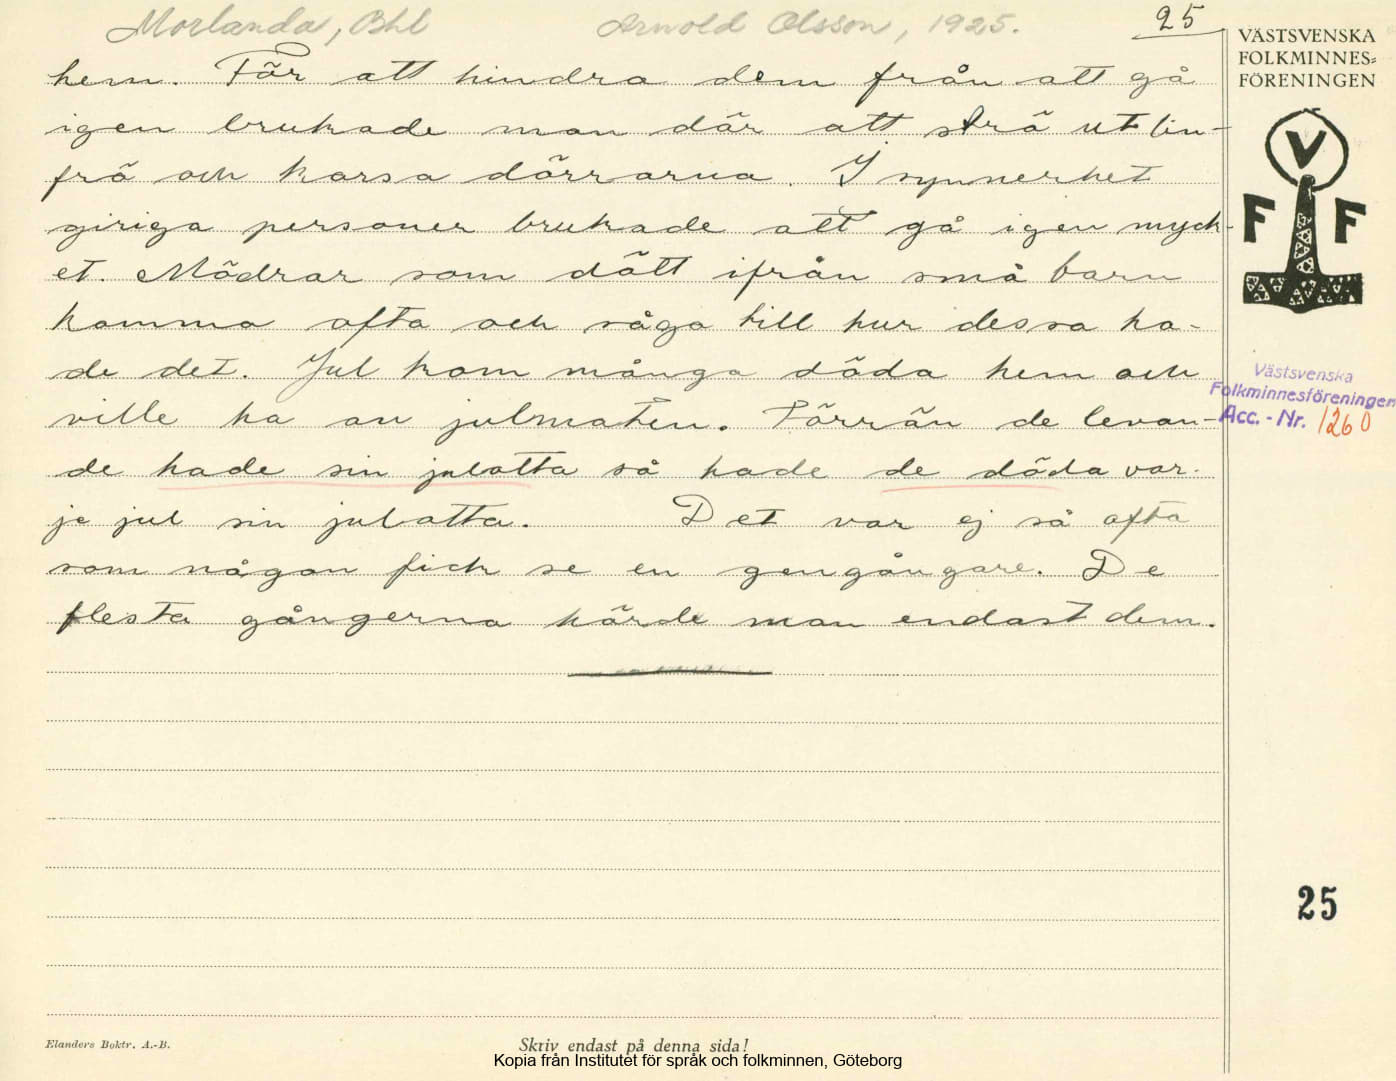 Morlanda, Bhl
Arnold Olsson, 1925.
25
VÄSTSVENSKA
FOLKMINNES=
FÖRENINGEN
V
F F
hem. För att hindra dem från att gå
igen brukade man där att strö ut lin-
frö och korsa dörrarna. I synnerhet
giriga personer brukade att gå igen myck-
et. Mödrar som dött ifrån små barn
komma ofta och såga till hur dessa ha-
de det. Jul kom många döda hem och
ville ha av julmaten. Förrän de levan-
de hade sin julotta så hade de döda var-
je jul sin julotta. Det var ej så ofta
som någon fick se en gengångare. De
flesta gångerna hörde man endast dem.
Västsvenska
Folkminnesföreningen
Acc.-Nr. 1260
25
Elanders Boktr. A.-B.
Skriv endast på denna sida!
Kopia från Institutet för språk och folkminnen, Göteborg